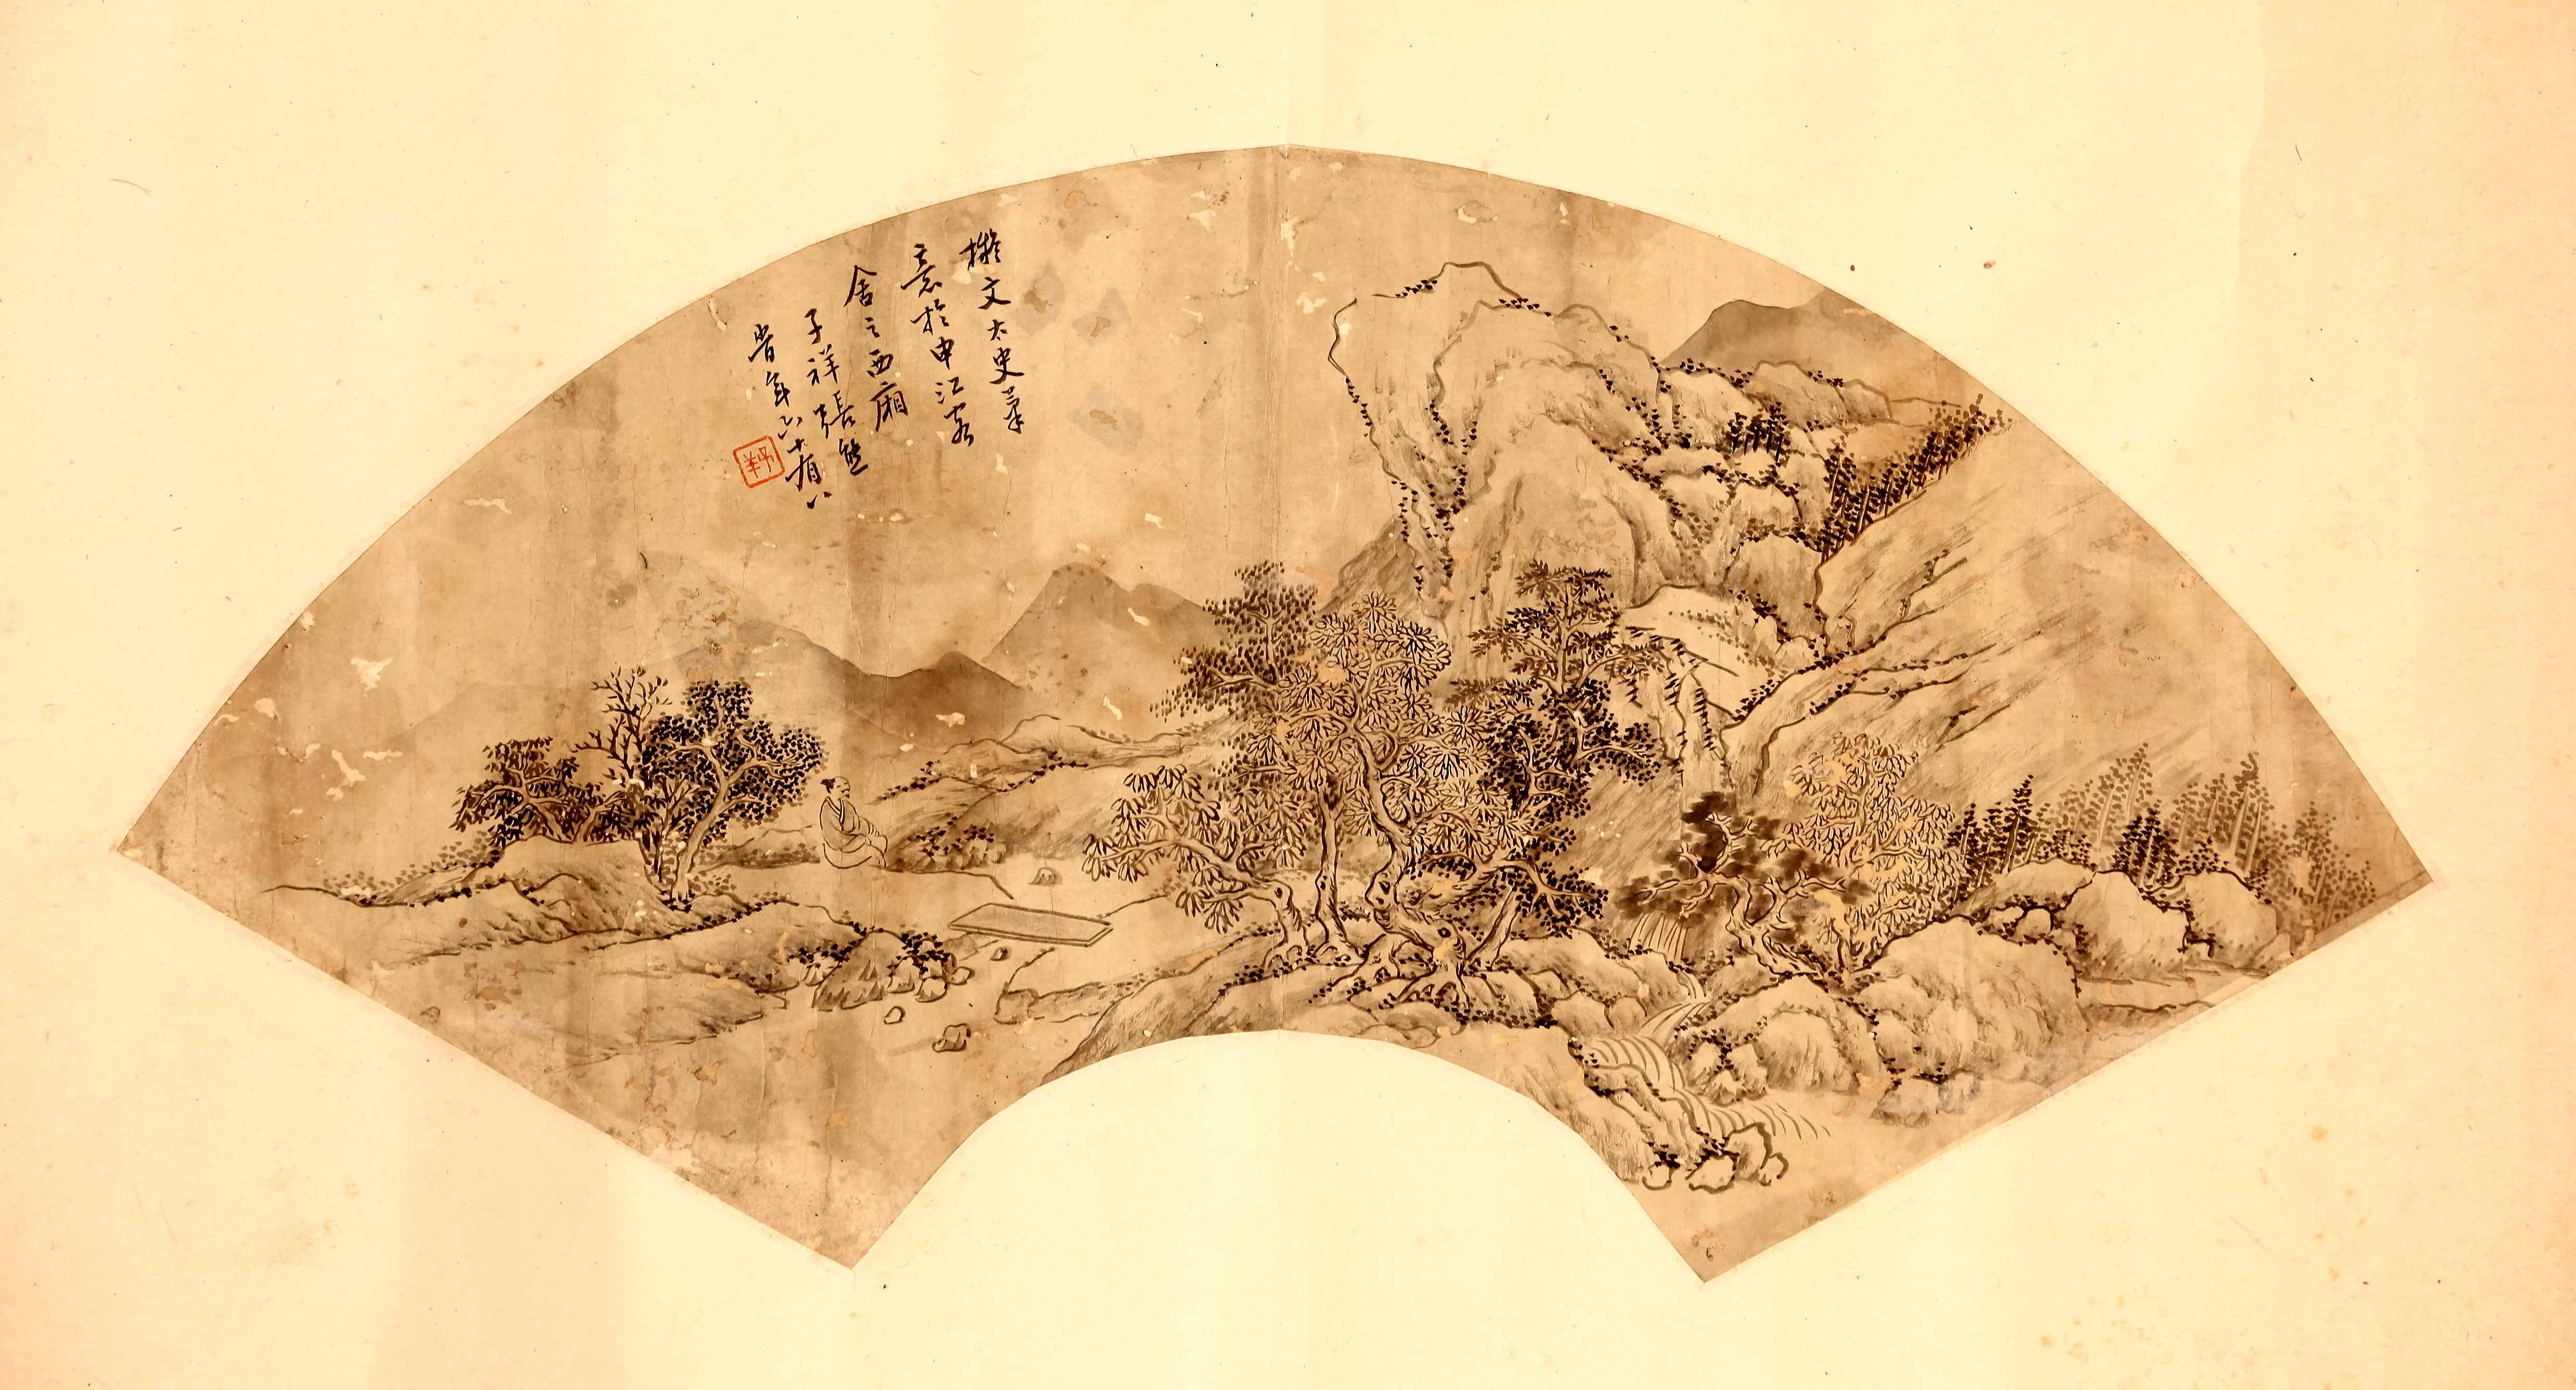 擬文太史筆
意於申江客
舍之西廂
子祥張熊
旹年六十有八
子羊